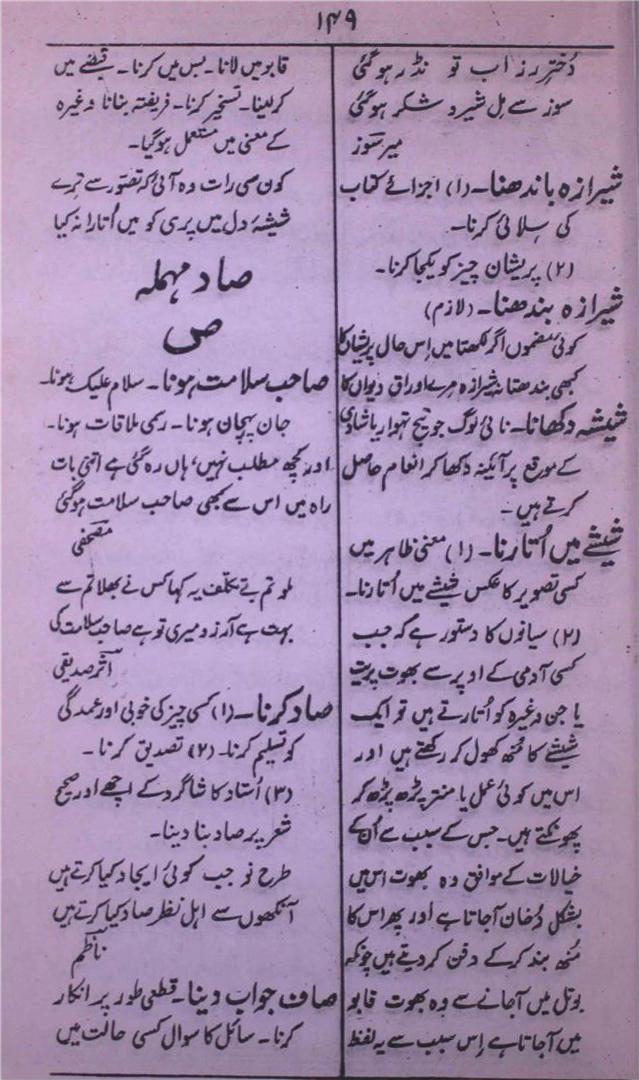 ۱۴۹
دُخترِ رز اب تو نڈر ہو گئی
سوز سے مِل شیر و شکر ہو گئی
میر سوز
شیرازہ باندھنا۔ (۱) اجزائے کتاب
کی سلائی کرنا۔
(۲) پریشان چیز کو یکجا کرنا۔
شیرازہ بندھنا۔ (لازم)
کوئی مضموں اگر لکھتا میں اِس حالِ پریشاں کا
کبھی بندھتا نہ شیرازہ مرے اوراقِ دیواں کا
شیشہ دکھانا۔ نائی لوگ جو تیج تہوار یا شادی
کے موقع پر آئینہ دکھا کر انعام حاصل
کرتے ہیں۔
شیشے میں اُتارنا۔ (۱) معنی ظاہر ہیں
کسی تصویر کا عکس شیشے میں اُتارنا۔
(۲) سیانوں کا دستور ہے کہ جب
کسی آدمی کے اوپر سے بھوت پریت
یا جن وغیرہ کو اُتارتے ہیں تو ایک
شیشے کا مُنھ کھول کر رکھتے ہیں اور
اس میں کوئی عمل یا منتر پڑھ پڑھ کر
پھونکتے ہیں۔ جس کے سبب سے اُن کے
خیالات کے موافق وہ بھوت اس میں
بشکل دُخان آ جاتا ہے اور پھر اس کا
مُنھ بند کر کے دفن کر دیتے ہیں چونکہ
بوتل میں آ جانے سے وہ بھوت قابو
میں آ جاتا ہے اِس سبب سے یہ لفظ
قابو میں لانا۔ بس میں کرنا۔ قبضے میں
کر لینا۔ تسخیر کرنا۔ فریفتہ بنانا وغیرہ
کے معنی میں مستعمل ہو گیا۔
کون سی رات وہ آئی کہ تصور سے ترے
شیشۂ دل میں پری کو میں اُتارا نہ کیا
صاد مہملہ
ص
صاحب سلامت ہونا۔ سلام علیک ہونا۔
جان پہچان ہونا۔ رسمی ملاقات ہونا۔
اور کچھ مطلب نہیں، ہاں رہ گئی ہے اتنی بات
راہ میں اس سے کبھی صاحب سلامت ہو گئی
مصحفی
ملو تم بے تکلف یہ کہا کس نے بھلا تم سے
بہت ہے آرزو میری تو ہے صاحب سلامت کی
اثر صدیقی
صاد کرنا۔ (۱) کسی چیز کی خوبی اور عمدگی
کو تسلیم کرنا۔ (۲) تصدیق کرنا۔
(۳) اُستاد کا شاگرد کے اچھے اور صحیح
شعر پر صاد بنا دینا۔
طرح نو جب کوئی ایجاد کیا کرتے ہیں
آنکھوں سے اہل نظر صاد کیا کرتے ہیں
ناظم
صاف جواب دینا۔ قطعی طور پر انکار
کرنا۔ سائل کا سوال کسی حالت میں